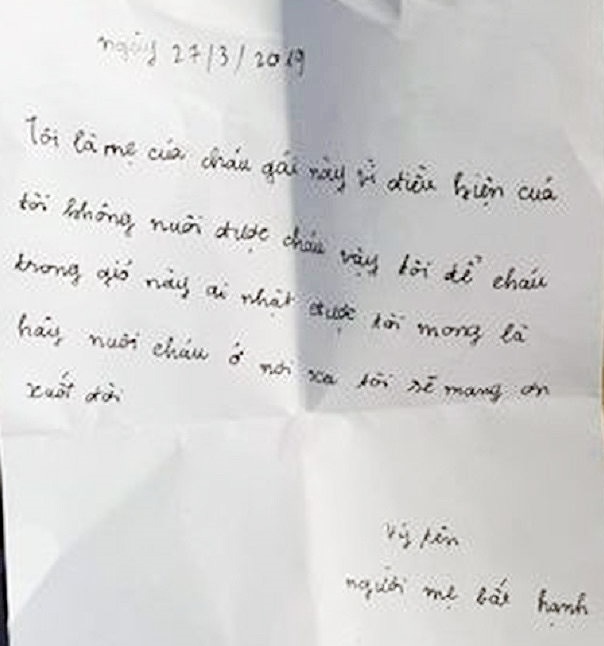 ngày 27/3/2019
Tôi là mẹ của cháu gái này vì điều kiện của
tôi không nuôi được cháu vậy tôi để cháu
trong giỏ này ai nhặt được tôi mong là
hãy nuôi cháu ở nơi xa tôi sẽ mang ơn
xuốt đời
Ký tên
người mẹ bất hạnh